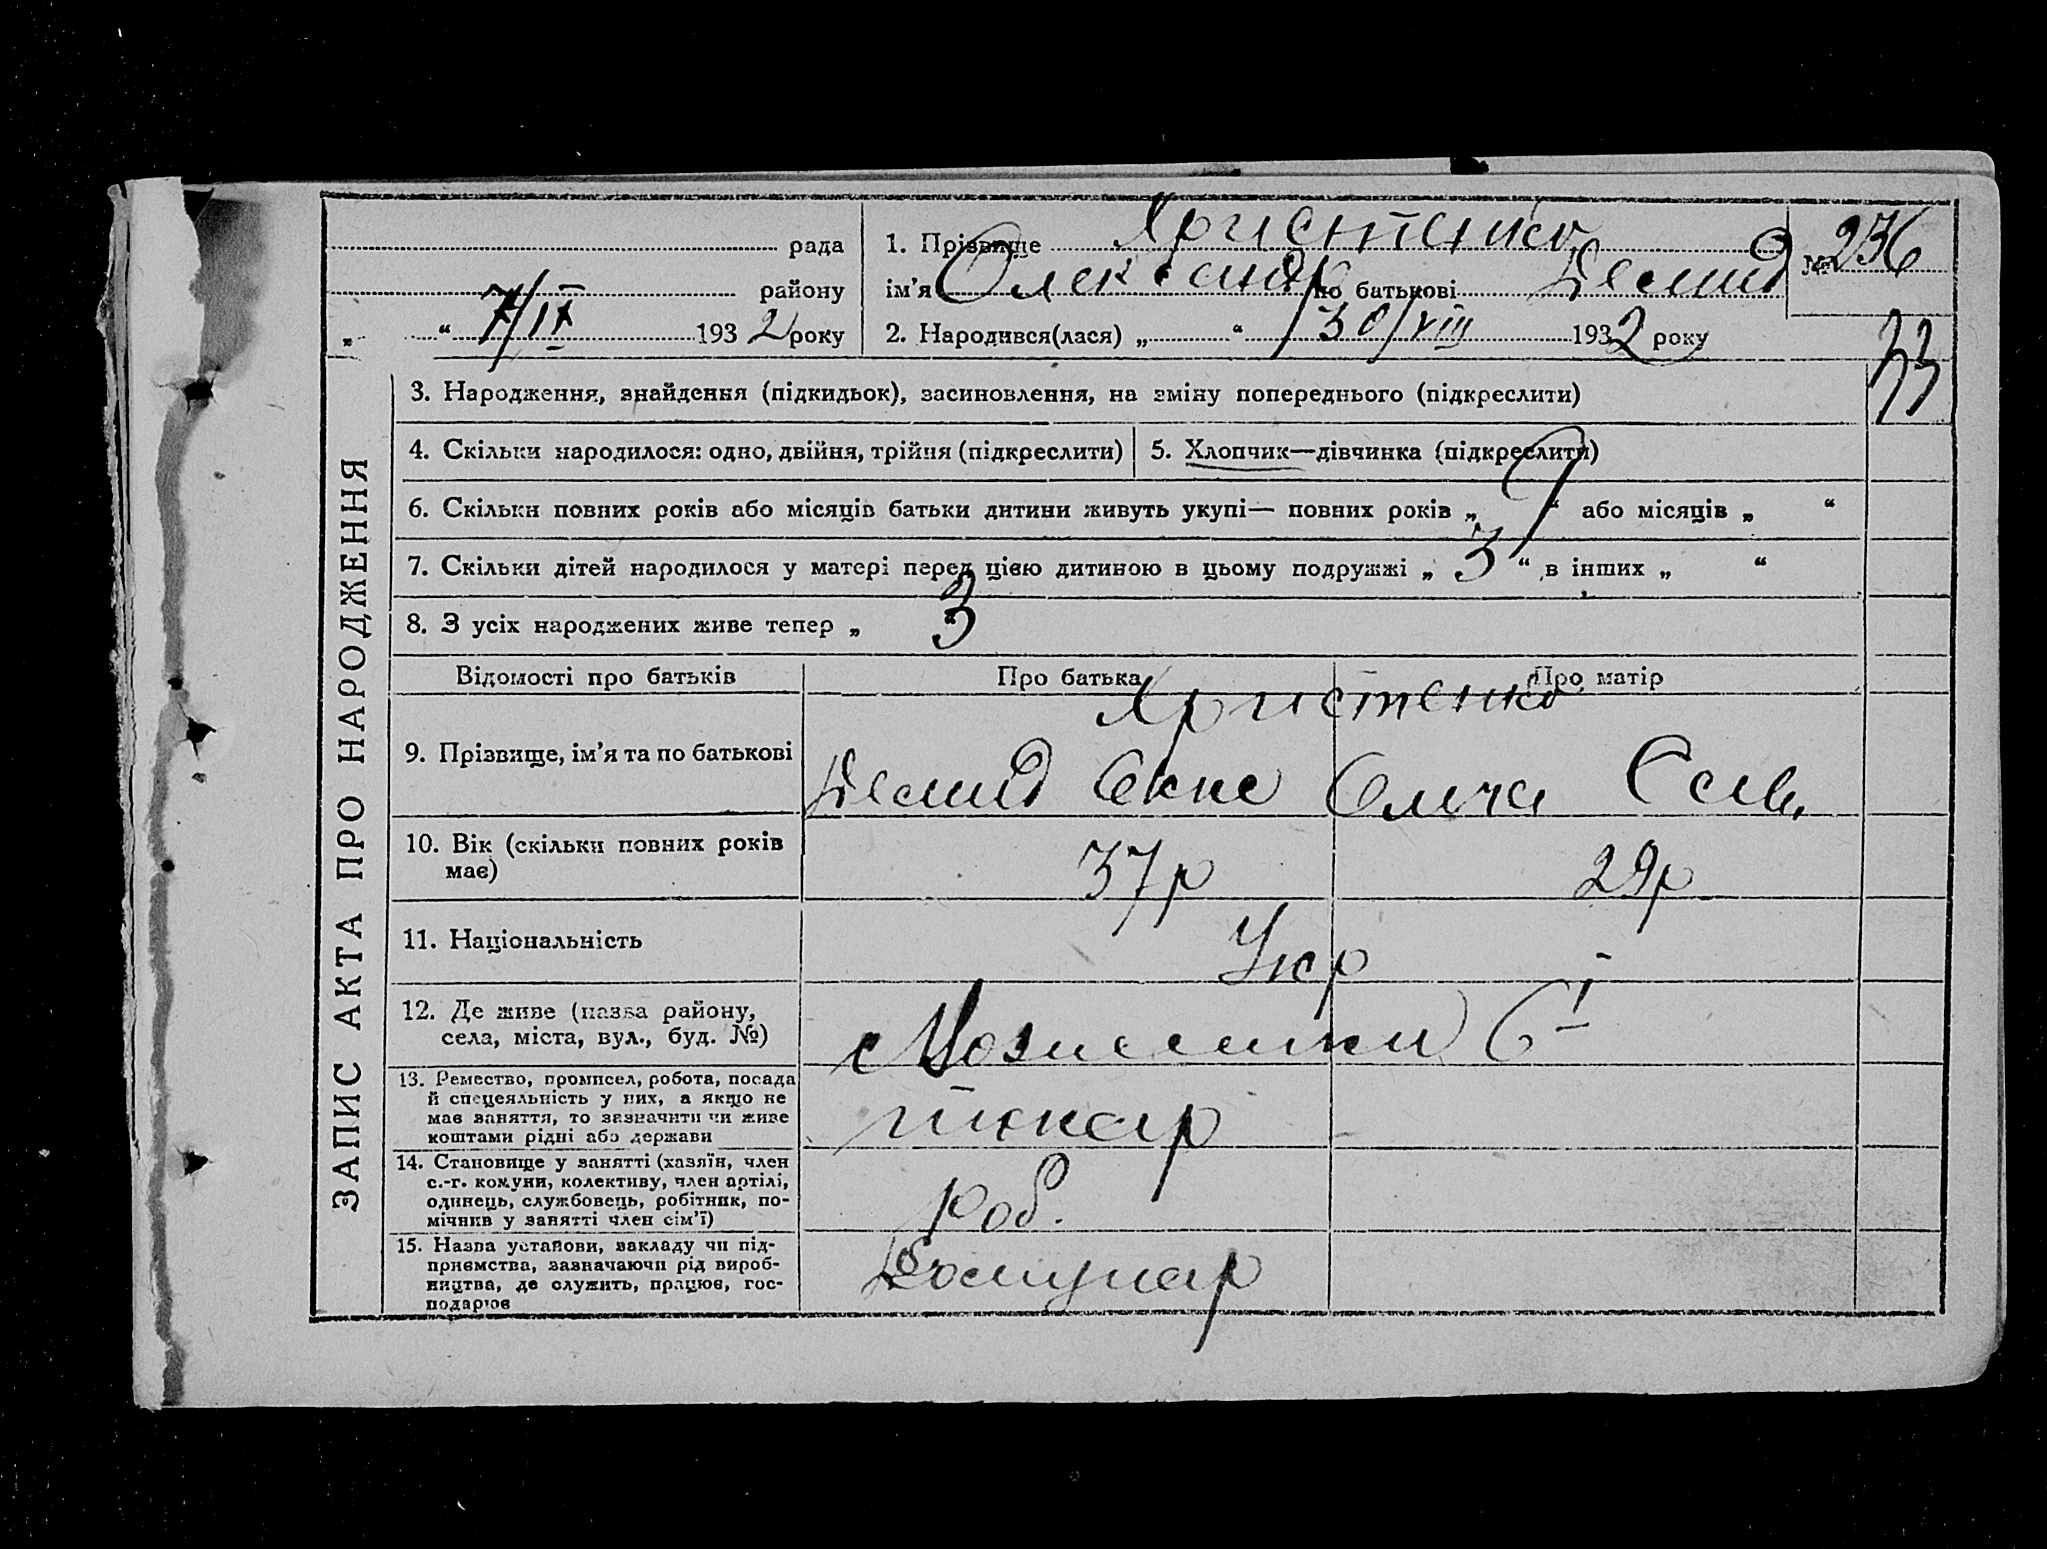 рада
району
„ “ 7/IX 1932 року
1. Прізвище Христенко
ім’я Олександр по батькові Демид
2. Народився(лася) „ “ 30/VIII 1932 року
№ 236
33
ЗАПИС АКТА ПРО НАРОДЖЕННЯ
3. Народження, знайдення (підкидьок), засиновлення, на зміну попереднього (підкреслити)
4. Скільки народилося: одно, двійня, трійня (підкреслити)
5. Хлопчик—дівчинка (підкреслити)
6. Скільки повних років або місяців батьки дитини живуть укупі— повних років „ 9 “ або місяців „ “
7. Скільки дітей народилося у матері перед цією дитиною в цьому подружжі „ 3 “ в інших „ “
8. З усіх народжених живе тепер „ 3 “
Відомості про батьків
Про батька
Про матір
9. Прізвище, ім’я та по батькові
Христенко
Демид
10. Вік (скільки повних років
має)
37р
29р
11. Національність
Укр
12. Де живе (назва району,
села, міста, вул., буд. №)
13. Ремество, промисел, робота, посада
й спецеяльність у них, а якщо не
має заняття, то зазначити чи живе
коштами рідні або держави
пікар
14. Становище у занятті (хазяїн, член
с.-г. комуни, колективу, член артілі,
одинець, службовець, робітник, по-
мічник у занятті член сім’ї)
роб.
15. Назва установи, закладу чи під-
приємства, зазначаючи рід вироб-
ництва, де служить, працює, гос-
подарює